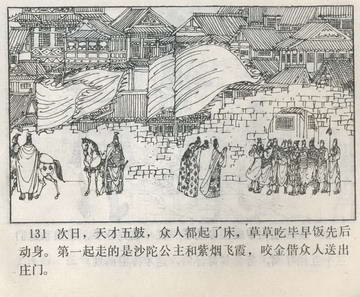 131 次日，天才五鼓，众人都起了床，草草吃毕早饭先后
动身。第一起走的是沙陀公主和紫烟飞霞，咬金偕众人送出
庄门。